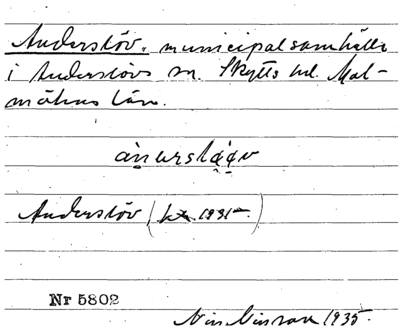 Anderslöv, municipalsamhälle
i Anderslövs sn. Skytts hd. Mal-
möhus län.
ànərslǫ̀ǫv
Anderslöv (kz. 1931)
Nr 5802
Nils Nilsson 1935.